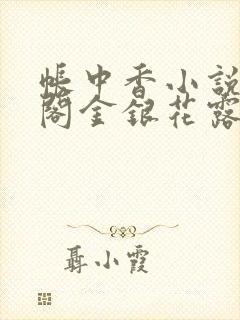 帳中香小説
閣金銀花露
聶小霞